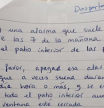 Despert
y una alarma que suele
a las 7 de la mañana.
al patio interior de las
favor, apagad esa alar
que a veces suena duran
hora o más, y se
todo el patio interior aun
ventana esté cerrada